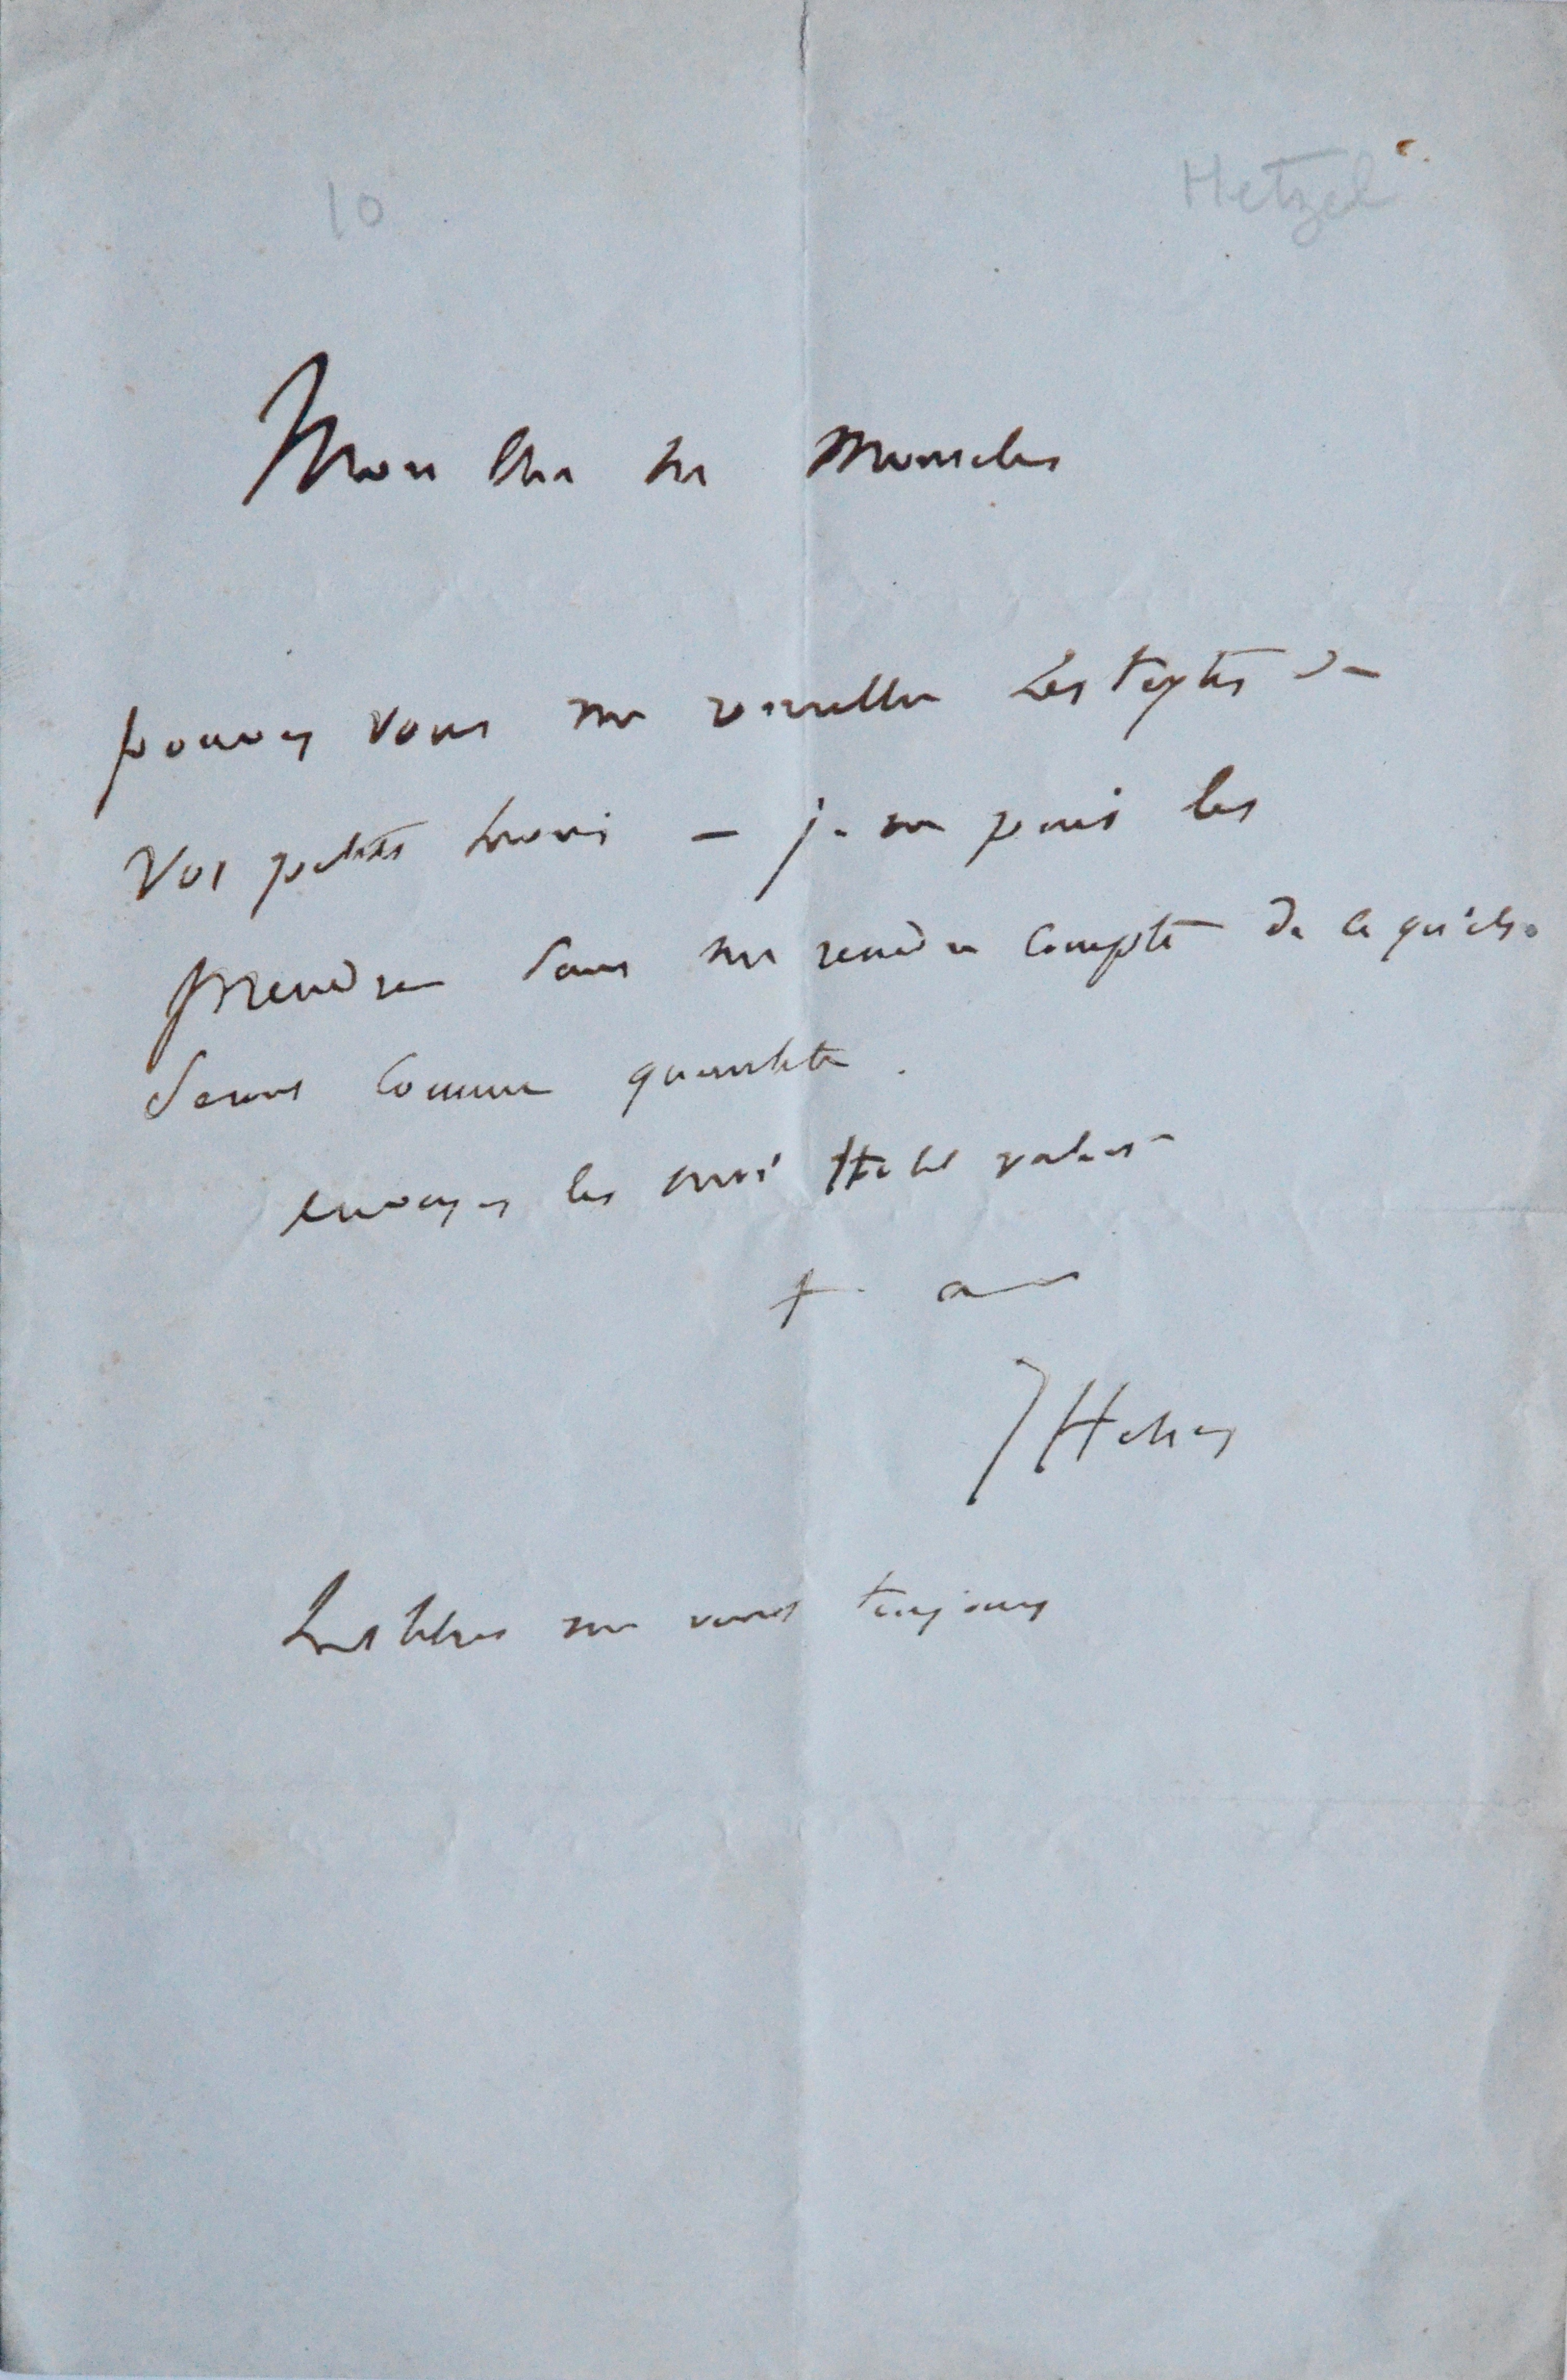 10
Hetzel
Mon cher Mr Monselet
pouvez vous me remettre les textes de
Vos petits – je ne puis les
prendre sans me rendre compte de ce qu'ils
seront comme quantité.
envoyez les moi Hotel
t. a
J Hetzel
me vont toujours